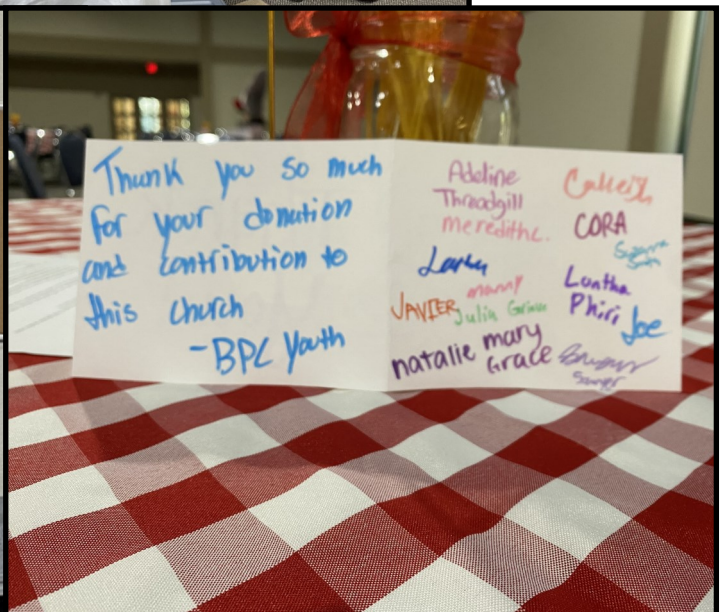 Thank you so much
for your donation
and contribution to
this church
-BPC Youth
Adeline
Threadgill
meredith c.
manny
JAVIER
Julia
natalie
mary
Grace
CORA
Luntha
Phiri
Joe
Sawyer